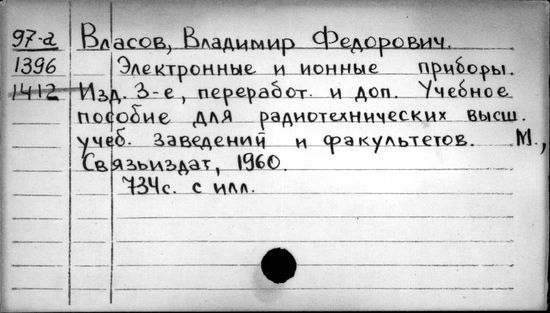 97-а Власов, Владимир Федорович.
1396 Электронные и ионные приборы.
1412 Изд. 3-е, переработ. и доп. Учебное
пособие для радиотехнических высш.
учеб. заведений и факультетов. М.,
Связьиздат, 1960.
734с. с илл.